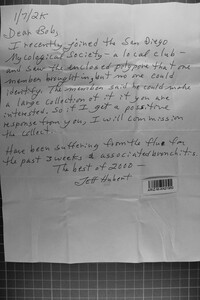 1/7/2K
Dear Bob,
I recently joined the San Diego
Mycological Society - a local club -
and saw the enclosed polypore that one
member brought in but no one could
identify. The member said he could make
a large collection of it if you are
interested. So if I get a possitive
response from you, I will commission
the collect.
Have been suffering from the flu for
the past 3 weeks & associated bronchitis.
The best of 2000 -
Jeff Hubert